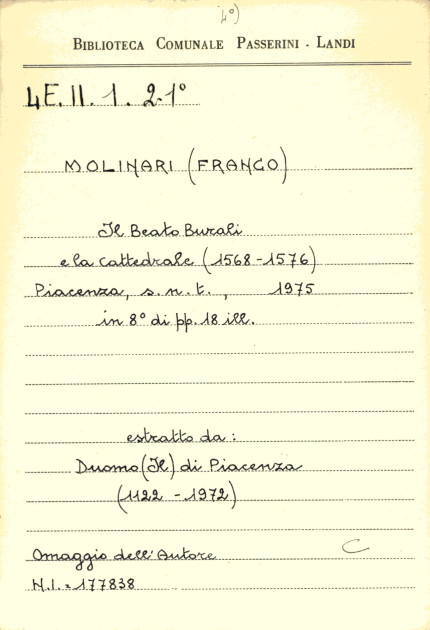 4°)
BIBLIOTECA COMUNALE PASSERINI - LANDI
4E.II.1.2.1°
MOLINARI (FRANCO)
Il Beato Burali
e la Cattedrale (1568-1576)
Piacenza, s.n.t., 1975
in 8° di pp. 18 ill.
estratto da:
Duomo (Il) di Piacenza
(1122-1972)
Omaggio dell'Autore
C
N.I. = 177838